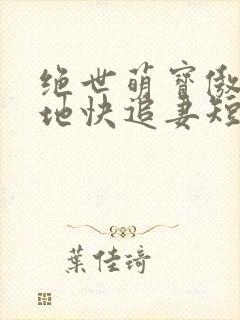 绝世萌寶傲
地快追妻短
葉佳琦